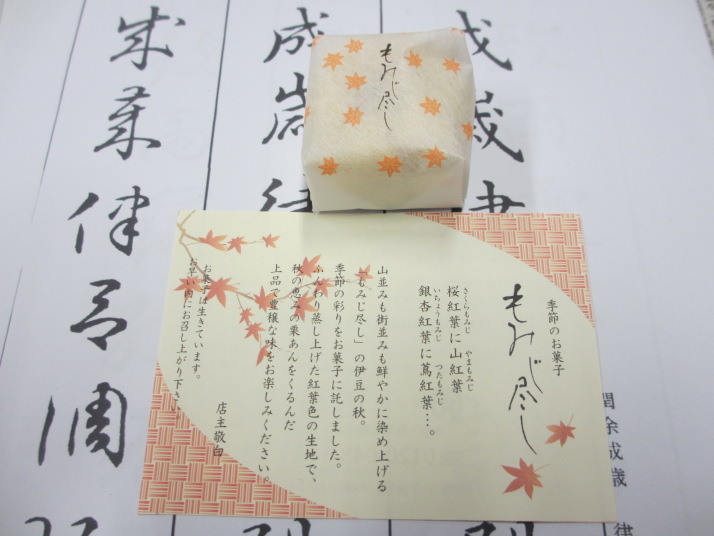 もみじ尽し
季節のお菓子
もみじ尽し
桜紅葉に山紅葉
さくらもみじ
やまもみじ
銀杏紅葉に蔦紅葉…。
いちょうもみじ
つたもみじ
山並みも街並みも鮮やかに染め上げる
「もみじ尽し」の伊豆の秋。
季節の彩りをお菓子に託しました。
ふんわり蒸し上げた紅葉色の生地で、
秋の恵みの栗あんをくるんだ
上品で豊穣な味をお楽しみください。
お菓子は生きています。
お早い内にお召し上がり下さい。
店主敬白
閏余成歳
律
成歳律
成歳律呂調